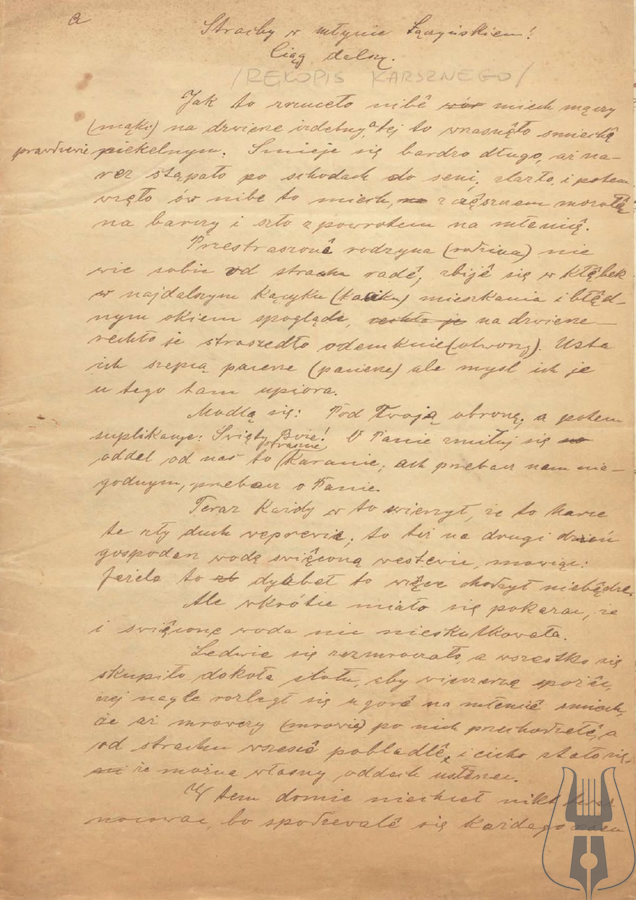 a
Strachy w młynie Łążyńskiem!
Ciąg dalszy.
/RĘKOPIS KARSZNEGO/
Jak to rzuceło nibê miech mączy
(mąki) na dzwierze izdebny, tej to wrasnęło smiechę
prawdziwie piekelnym. Smieje się bardzo długo, aż na-
rez stąpało po schodach do seni, zlazło, i potem
wzęło ów nibe to miech, z cięższnem
na barczy i szło z powrotem na młenicę.
Przestraszonê rodzyna (rodzina) nie
wie sobie od strachu radê, zbijê się w kłębek
w najdalszym kącyku (kaciku) mieszkania i błęd-
nym okiem spogląda na dzwierze
rechło je straszedło odemknie (otworzy). Usta
ich szepią pacerze (pacierze) ale mysl ich je
u tego tam upiora.
Modlą się: Pod Twoją obronę, a potem
suplikacye: Święty Boże! O Panie zmiłuj się
oddel od nas to straszne karanie, ach przebacz nam nie-
godnym, przebacz o Panie.
Teraz każdy w to wierzył, że to harce
te zły duch weprewia, to też na drugi dzień
gospodarz wodę swięconą westawie, mowiąc:
Jeżelo to dyabeł to więce chodzył niebądze.
Ale wkrótce miało się pokazac, że
i swięcone woda nic nieskutkowała.
Ledwie się rozmroczało, a wszestko się
skupiło dokoła stołu, aby wieczerzą spożic,
nagle rozległ się u góre na młenicê smiech,
że aż mrovczy (mrowie) po nich przechodzełê, a
od strachu wszescê pobladlê, i cicho stało się,
że można własny oddech usłeszec.
W tem domie niechciał nikt
nocowac, bo spodzewalê się każdego